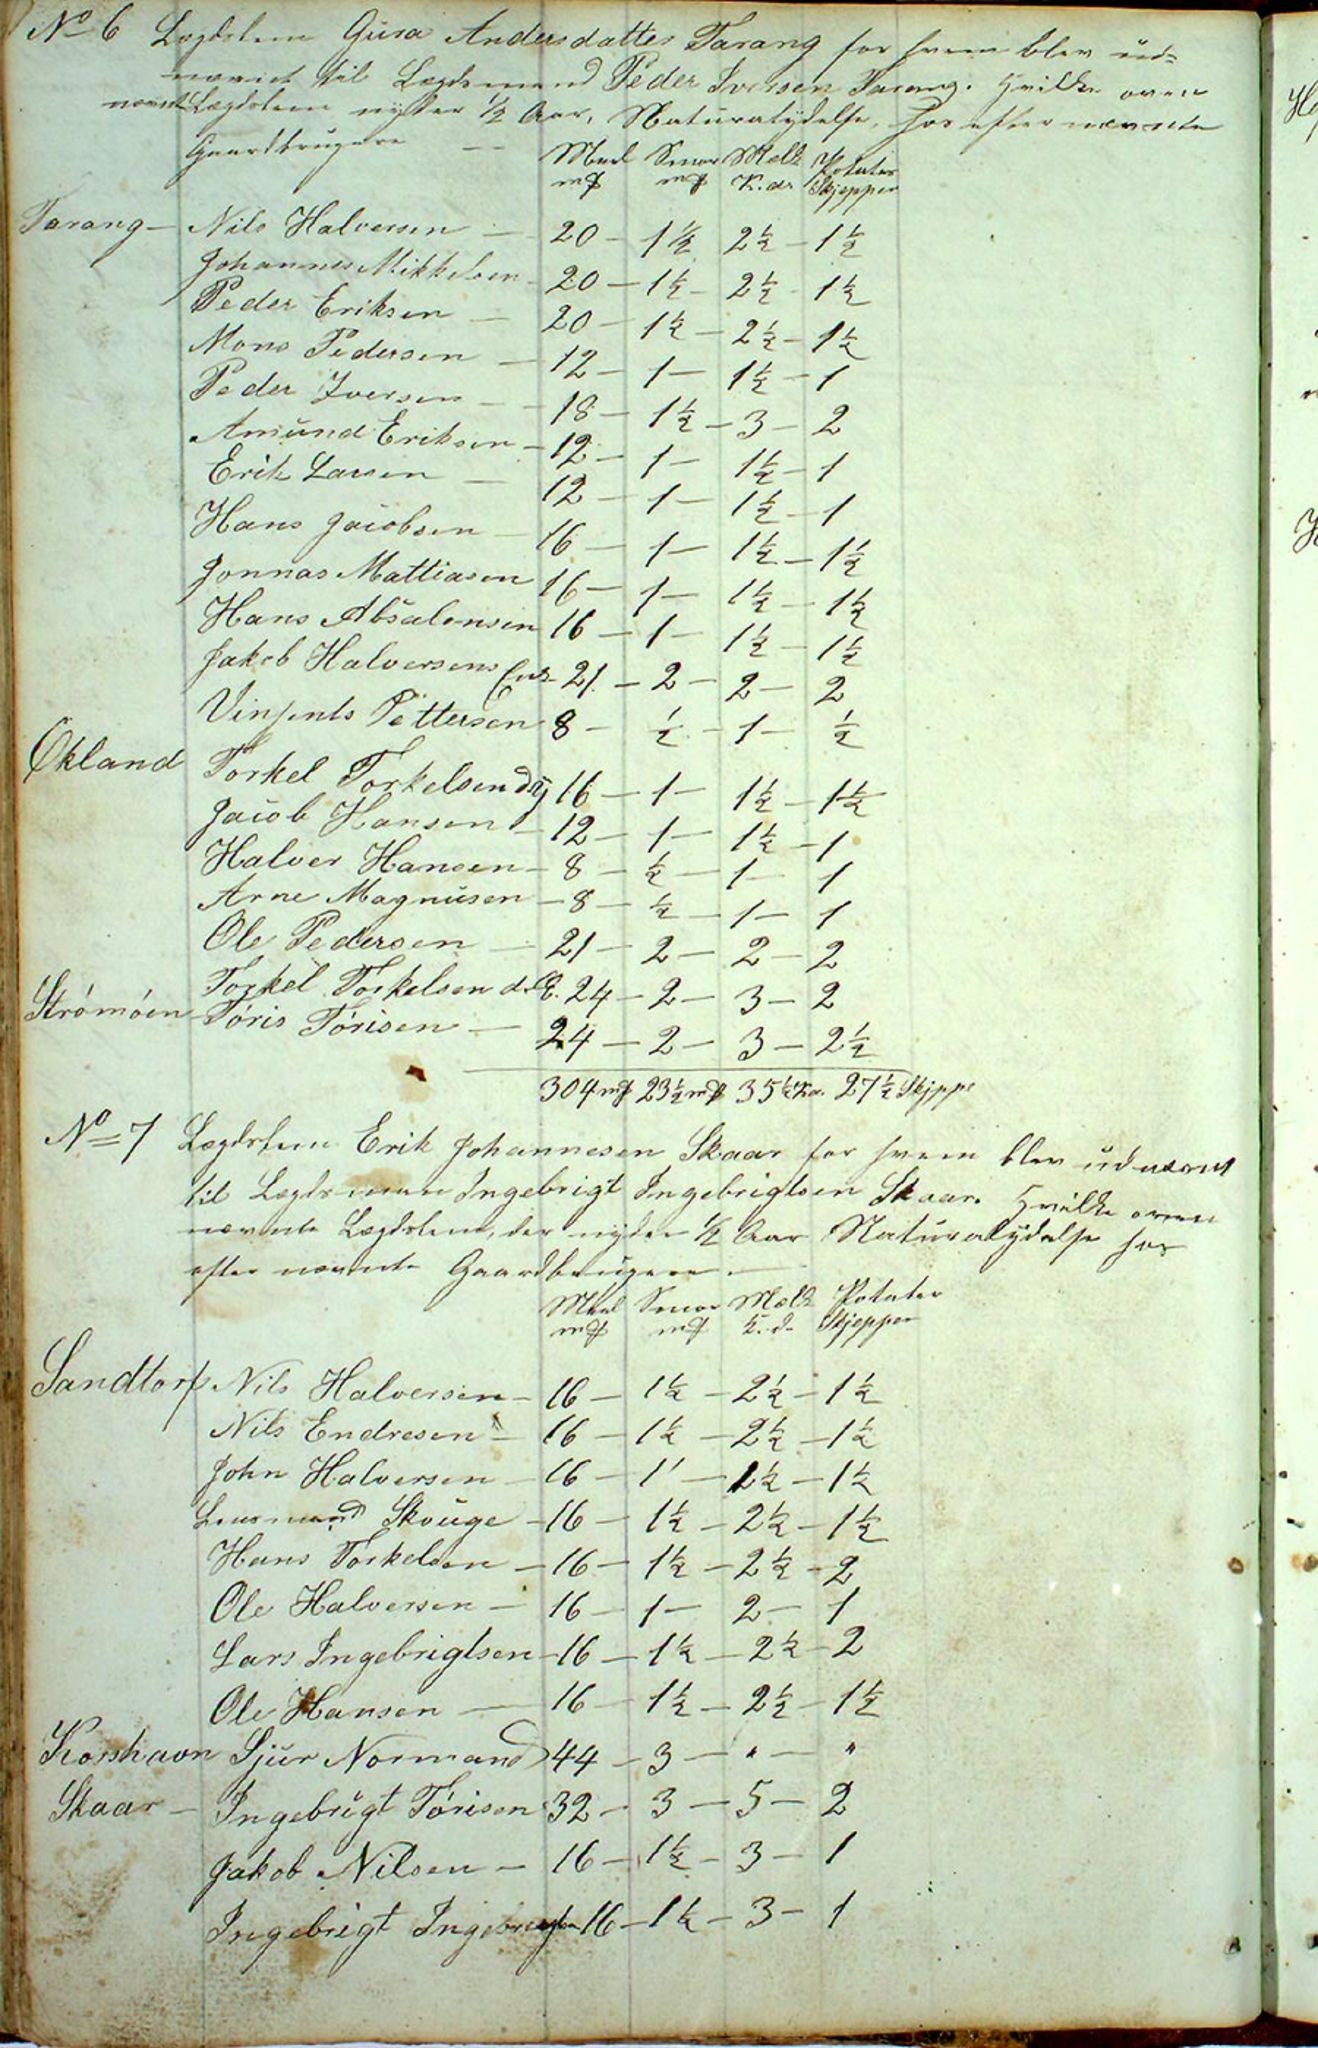 No 6 Lægdslem Gura Andersdatter Tarang for hvem blev ud-
nævnt til Lægdsmand Peder Iversen Tarang. Hvilke oven
nævnt Lægdslem nyder 1/2 Aar, Naturalydelse, hos efter nævnte
Gaardbrugere --
Meel Smør Melk Potater
K. dr Skjepper
Tarang - Nils Halversen - 20 - 1 1/2 2 1/2 - 1 1/2
Johannes Mikkelsen - 20 - 1 1/2 - 2 1/2 - 1 1/2
Peder Eriksen - 20 - 1 1/2 - 2 1/2 - 1 1/2
Mons Pedersen - 12 - 1 - 1 1/2 - 1
Peder Iversen - 18 - 1 1/2 - 3 - 2
Amund Eriksen - 12 - 1 - 1 1/2 - 1
Erik Larsen - 12 - 1 - 1 1/2 - 1
Hans Jacobsen - 16 - 1 - 1 1/2 - 1 1/2
Jonnas Mattiasen 16 - 1 - 1 1/2 - 1 1/2
Hans Absalonsen 16 - 1 - 1 1/2 - 1 1/2
Jakob Halversens Enk- 21. - 2 - 2 - 2
Vinsents Pettersen 8 - 1/2 - 1 - 1/2
Økland Torkel Torkelsen dy 16 - 1 - 1 1/2 - 1 1/2
Jacob Hansen - 12 - 1 - 1 1/2 - 1
Halver Hansen - 8 - 1/2 - 1 - 1
Arne Magnusen - 8 - 1/2 - 1 - 1
Ole Pedersen - 21 - 2 - 2 - 2
Torkel Torkelsen d. E. 24 - 2 - 3 - 2
Strømøen - Tøris Tørisen - 24 - 2 - 3 - 2 1/2
304 23 1/2 35 1/2 Kd. 27 1/2 Skjppe
No 7 Lægdslem Erik Johannesen Skaar for hvem blev udnævnt
til Lægdsman Ingebrigt Ingebrigtsen Skaar. Hvilke oven
nævnte Lægdslem, der nyder 1/2 Aar Naturalydelse hos
efter nævnte Gaardbrugere -
Meel Smør Melk Potater
K. d. Skjepper
Sandtorf Nils Halversen - 16 - 1 1/2 - 2 1/2 - 1 1/2
Nils Endresen - 16 - 1 1/2 - 2 1/2 - 1 1/2
John Halversen - 16 - 1 - 2 1/2 - 1 1/2
Lensmand Skouge - 16 - 1 1/2 - 2 1/2 - 1 1/2
Hans Torkelsen - 16 - 1 1/2 - 2 1/2 - 2
Ole Halversen - 16 - 1 - 2 - 1
Lars Ingebrigtsen - 16 - 1 1/2 - 2 1/2 - 2
Ole Hansen - 16 - 1 1/2 - 2 1/2 - 1 1/2
Korshavn Sjur Normand 44 - 3 - " - "
Skaar - Ingebrigt Tørisen 32 - 3 - 5 - 2
Jakob Nilsen - 16 - 1 1/2 - 3 - 1
Ingebrigt Ingebrigtsen 16 - 1 1/2 - 3 - 1